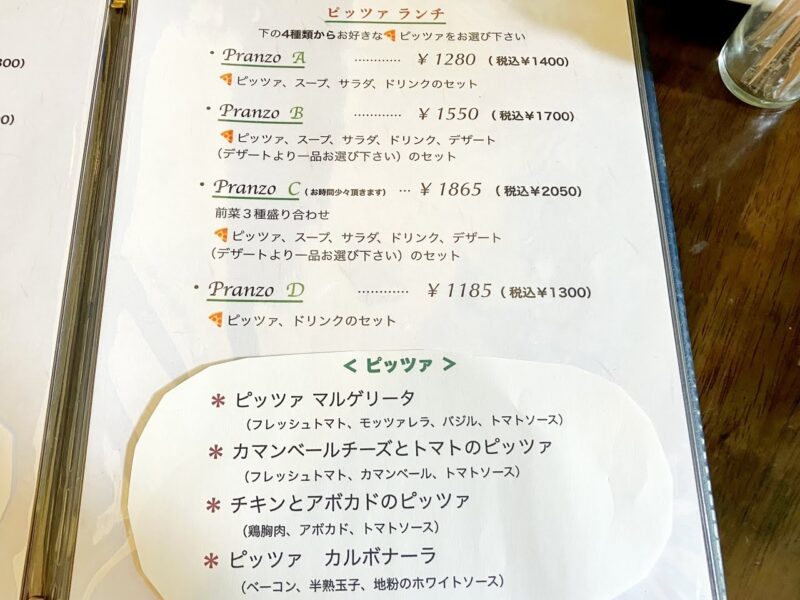 ピッツァ ランチ
下の4種類からお好きな🍕ピッツァをお選び下さい
・Pranzo A ………… ¥ 1280 (税込¥1400)
🍕ピッツァ、スープ、サラダ、ドリンクのセット
・Pranzo B ………… ¥ 1550 (税込¥1700)
🍕ピッツァ、スープ、サラダ、ドリンク、デザート
(デザートより一品お選び下さい)のセット
・Pranzo C (お時間少々頂きます) … ¥ 1865 (税込¥2050)
前菜3種盛り合わせ
🍕ピッツァ、スープ、サラダ、ドリンク、デザート
(デザートより一品お選び下さい)のセット
・Pranzo D ………… ¥ 1185 (税込¥1300)
🍕ピッツァ、ドリンクのセット
< ピッツァ >
* ピッツァ マルゲリータ
(フレッシュトマト、モッツァレラ、バジル、トマトソース)
* カマンベールチーズとトマトのピッツァ
(フレッシュトマト、カマンベール、トマトソース)
* チキンとアボカドのピッツァ
(鶏胸肉、アボカド、トマトソース)
* ピッツァ カルボナーラ
(ベーコン、半熟玉子、地粉のホワイトソース)